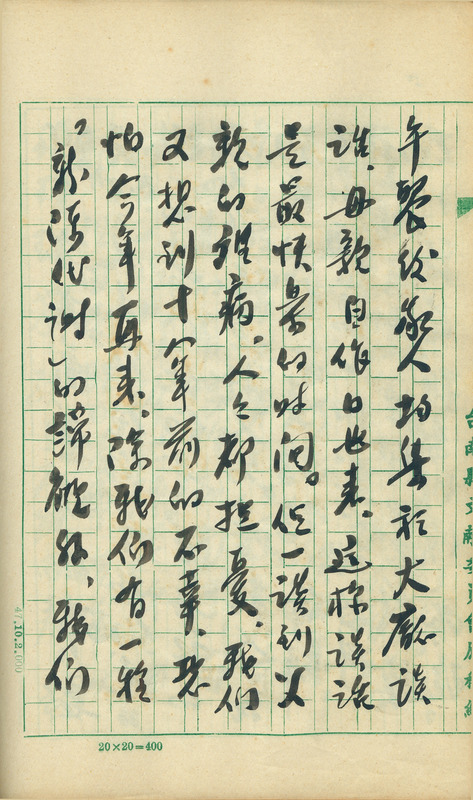 午餐後家人均集於大廳談
話。母親自昨日也来。這樣談話
是最快樂的時間。但一談到父
親的病,人人都担憂。我們
又想到十年前的不幸、恐
怕今年再来。除我們有一種
「新陳代謝」的諦觀外、我們
台南縣文獻委員會原稿紙
47.10.2.000
20×20=400